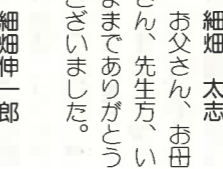 細畑　太志
お父さん、お母
さん、先生方、い
ままでありがとう
ございました。
細畑伸一郎